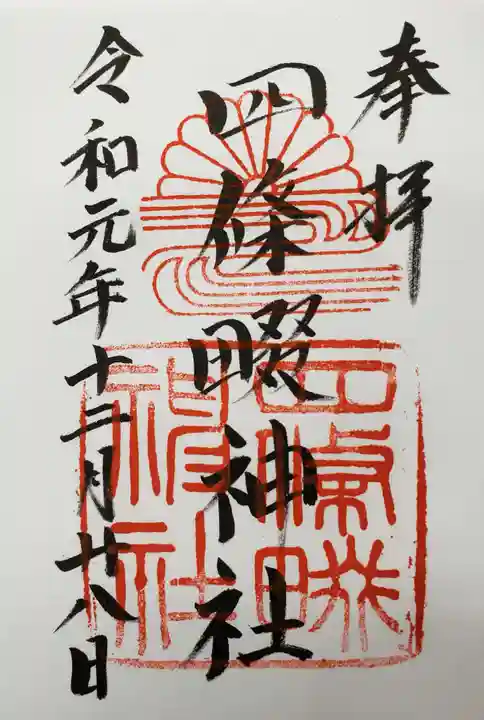 奉拝
四條畷神社
令和元年十二月廿八日
四條畷
神社